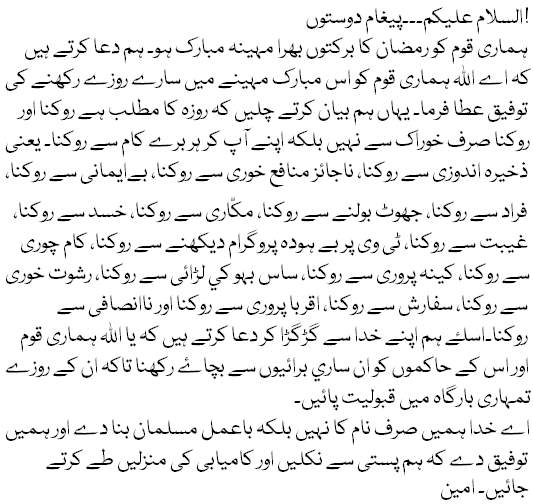 السلام علیکم۔۔۔پیغام دوستوں!
ہماری قوم کو رمضان کا برکتوں بھرا مہینہ مبارک ہو۔ ہم دعا کرتے ہیں
کہ اے اللہ ہماری قوم کو اس مبارک مہینے میں سارے روزے رکھنے کی
توفیق عطا فرما۔ یہاں ہم بیان کرتے چلیں کہ روزہ کا مطلب ہے روکنا اور
روکنا صرف خوراک سے نہیں بلکہ اپنے آپ کر ہر برے کام سے روکنا۔ یعنی
ذخیرہ اندوزی سے روکنا، ناجائز منافع خوری سے روکنا، بےایمانی سے روکنا،
فراد سے روکنا، جھوٹ بولنے سے روکنا، مکّاری سے روکنا، خسد سے روکنا،
غیبت سے روکنا، ٹی وی پر بے ہودہ پروگرام دیکھنے سے روکنا، کام چوری
سے روکنا، کینہ پروری سے روکنا، ساس بہو کي لڑائی سے روکنا، رشوت خوری
سے روکنا، سفارش سے روکنا، اقربا پروری سے روکنا اور ناانصافی سے
روکنا۔اسلئے ہم اپنے خدا سے گڑگڑا کر دعا کرتے ہیں کہ یا اللہ ہماری قوم
اور اس کے حاکموں کو ان ساري برائیوں سے بچاۓ رکھنا تاکہ ان کے روزے
تمہاری بارگاہ میں قبولیت پائیں۔
اے خدا ہمیں صرف نام کا نہیں بلکہ باعمل مسلمان بنا دے اور ہمیں
توفیق دے کہ ہم پستی سے نکلیں اور کامیابی کی منزلیں طے کرتے
جائیں۔ امین